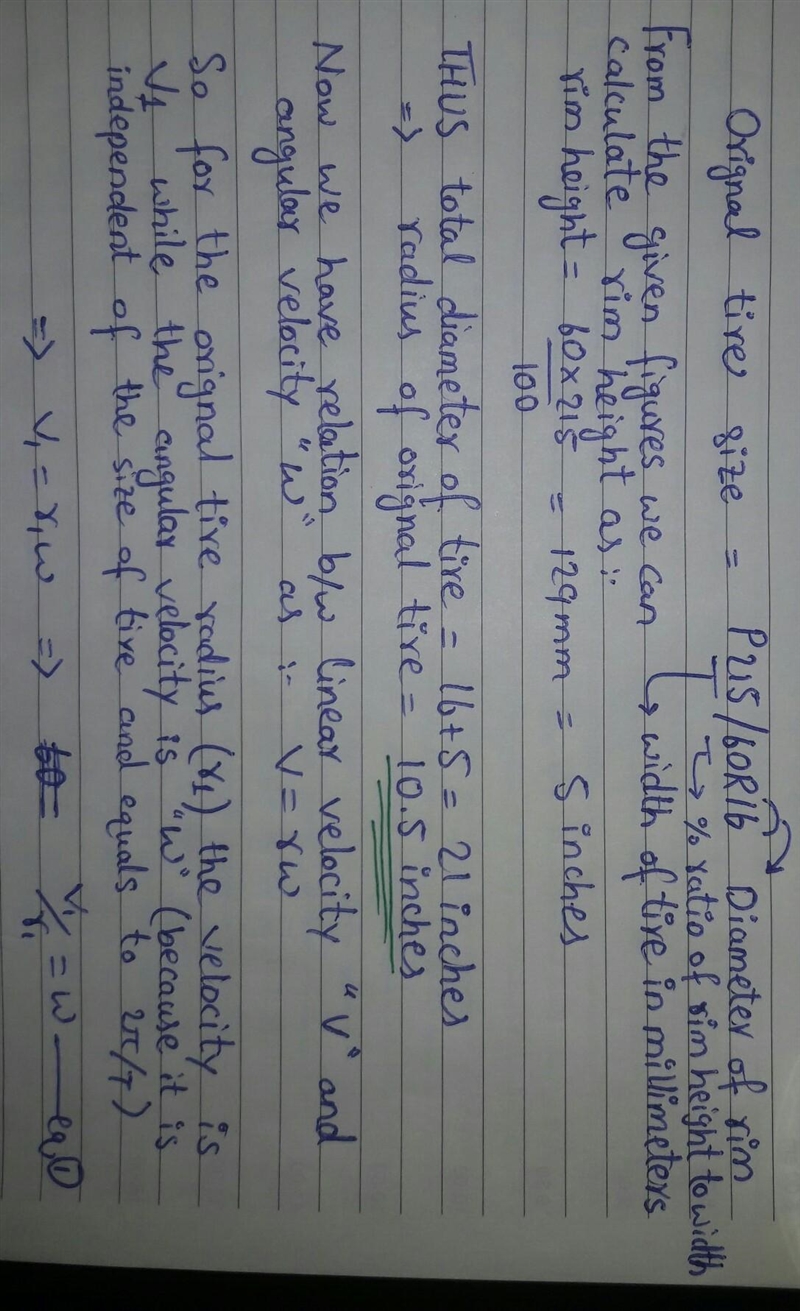 Orignal tire size = P215/60R16 Diameter of rim
% ratio of rim height to width
width of tire in millimeters
From the given figures we can
calculate rim height as :-
rim height = 60×215/100 = 129mm = 5 inches
THUS total diameter of tire = 16+5 = 21 inches
=> radius of orignal tire = 10.5 inches
Now we have relation b/w linear velocity "V" and
angular velocity "W" as :- V = rw
So for the orignal tire radius (r1) the velocity is
V1 while the angular velocity is "w" (because it is
independent of the size of tire and equals to 2π/T)
=> V1 = r1w => V1/r1 = w — eq ①